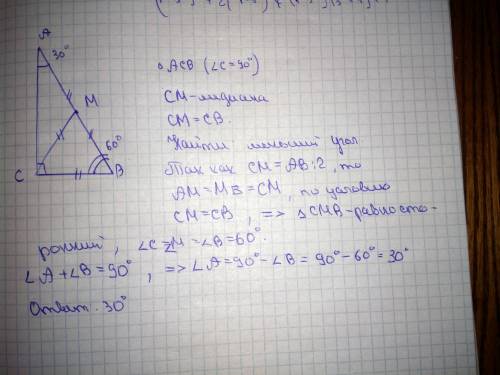 A
30°
M
60°
C
B
△ACB (∠C=90°)
CM-медиана
CM=CB.
Найти меньший угол
Так как CM=AB:2, то
AM=MB=CM, по условию
CM=CB, => △CMB-равносто-
ронний, ∠C=∠M=∠B=60°.
∠A+∠B=90°, => ∠A=90°-∠B=90°-60°=30°
Ответ: 30°